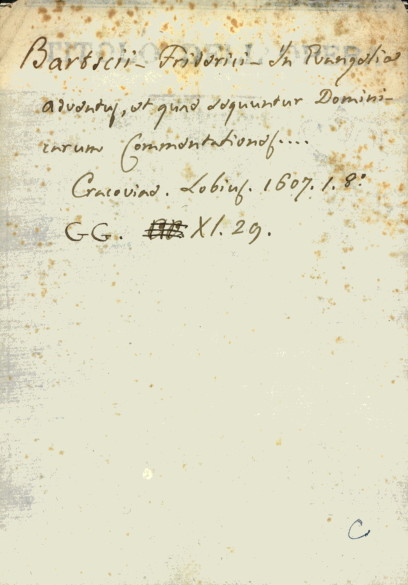 Bartscii - Friderici - In Evangelia
adventus, et quae sequuntur Domini-
carum Commentationes....
Cracoviae. Lobius. 1607. 1. 8:
GG. XI. 29.
C